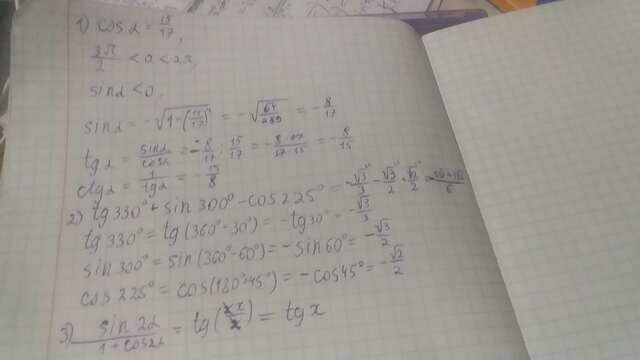 1) cos α = 15/17,
3π/2 < α < 2π,
sin α < 0,
sin α = -√(1-(15/17)²) = -√(64/289) = -8/17
tg α = sin α/cos α = -8/17 : 15/17 = -8·17/17·15 = -8/15
ctg α = 1/tg α = -15/8
2) tg 330° + sin 300° - cos 225° = -√3/3 - √3/2 + √2/2 =
tg 330° = tg(360°-30°) = -tg 30° = -√3/3
sin 300° = sin(360°-60°) = -sin 60° = -√3/2
cos 225° = cos(180°+45°) = -cos 45° = -√2/2
3) sin 2α/1+cos 2α = tg(2x/2) = tg x